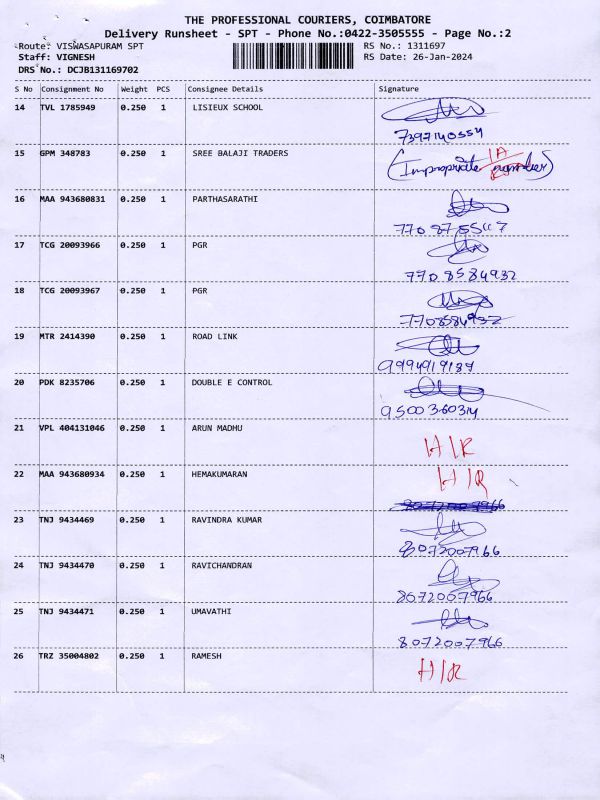 THE PROFESSIONAL COURIERS, COIMBATORE
Delivery Runsheet - SPT - Phone No.:0422-3505555 - Page No.:2
Route: VISWASAPURAM SPT RS No.: 1311697
Staff: VIGNESH RS Date: 26-Jan-2024
DRS No.: DCJB131169702
S No Consignment No Weight PCS Consignee Details Signature
14 TVL 1785949 0.250 1 LISIEUX SCHOOL
7397140554
15 GPM 348783 0.250 1 SREE BALAJI TRADERS
(Impropriate number)
16 MAA 943680831 0.250 1 PARTHASARATHI
17 TCG 20093966 0.250 1 PGR
7708584932
18 TCG 20093967 0.250 1 PGR
7708584932
19 MTR 2414390 0.250 1 ROAD LINK
20 PDK 8235706 0.250 1 DOUBLE E CONTROL
9500360314
21 VPL 404131046 0.250 1 ARUN MADHU
H/R
22 MAA 943680934 0.250 1 HEMAKUMARAN
H/R
8072007966
23 TNJ 9434469 0.250 1 RAVINDRA KUMAR
8072007966
24 TNJ 9434470 0.250 1 RAVICHANDRAN
8072007966
25 TNJ 9434471 0.250 1 UMAVATHI
8072007966
26 TRZ 35004802 0.250 1 RAMESH
H/R